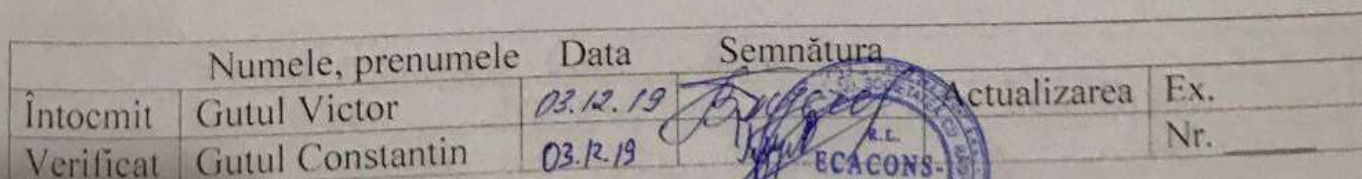 Numele, prenumele Data Semnătura
Întocmit Gutul Victor 03.12.19 Actualizarea Ex.
Verificat Gutul Constantin 03.12.19 Nr. ______
R.L.
ECACONS-